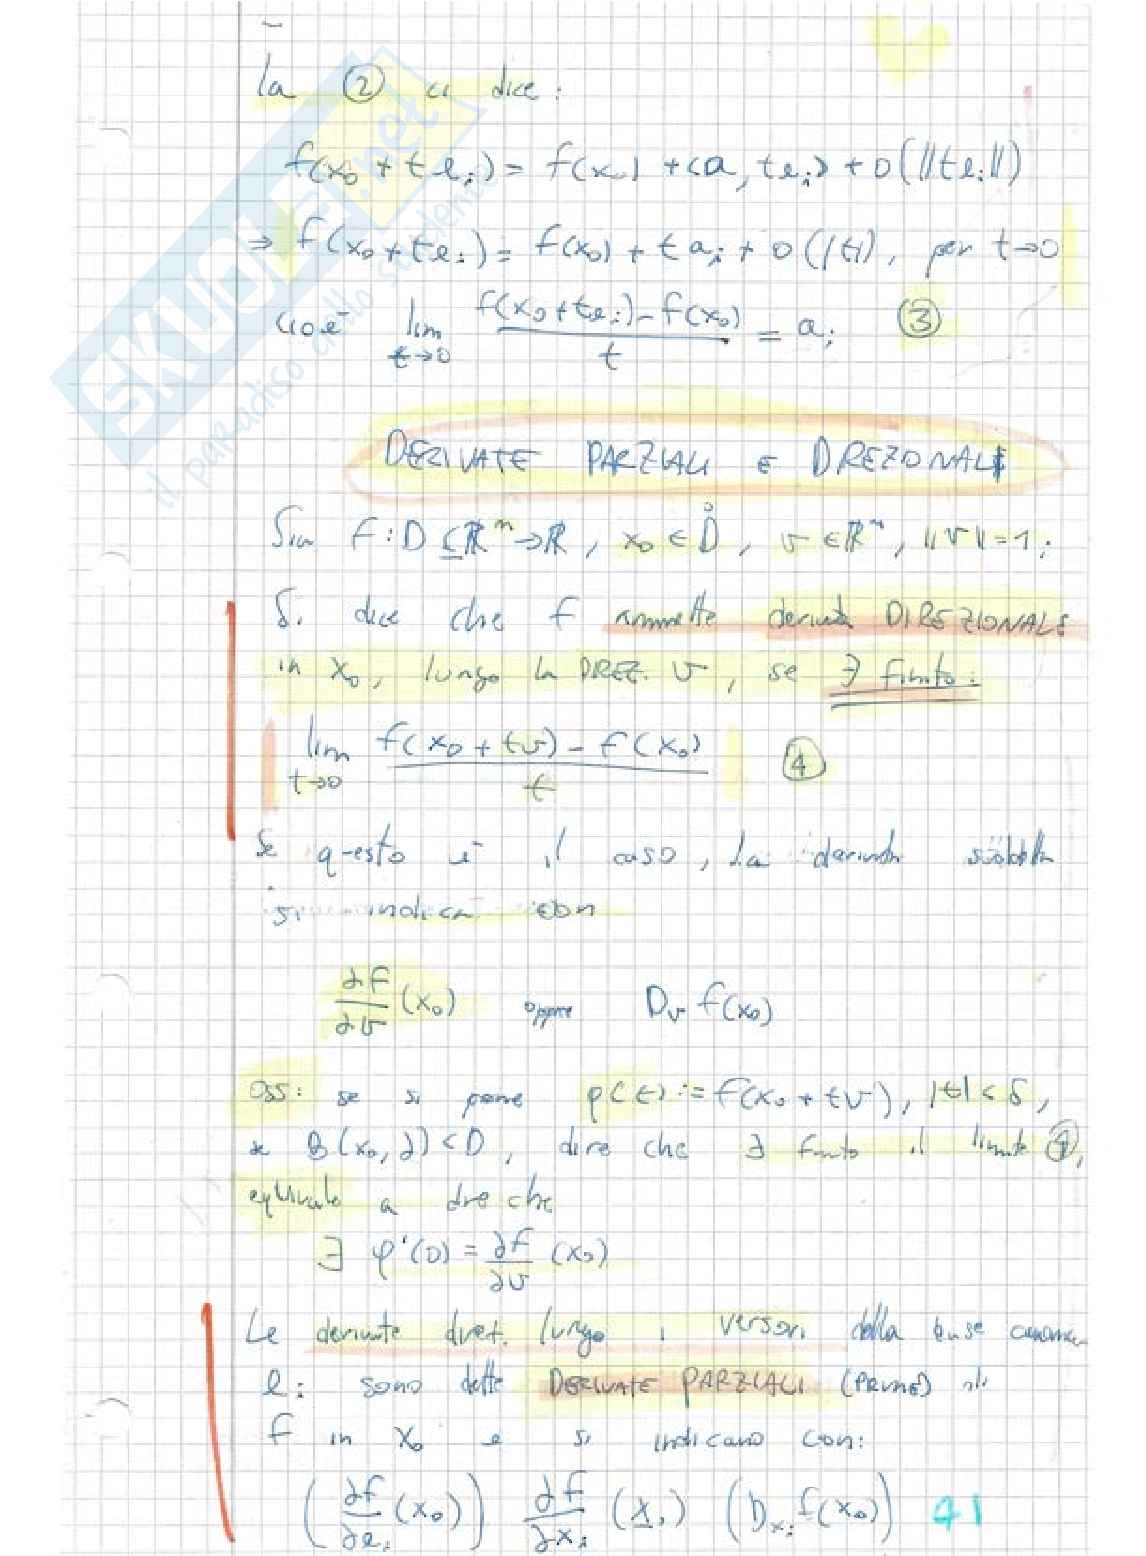 La ② ci dice:
f(x₀ + t eᵢ) = f(x₀) + <a, t eᵢ> + o(||t eᵢ||)
⇒ f(x₀ + t eᵢ) = f(x₀) + t aᵢ + o(|t|), per t→0
cioè lim t→0 (f(x₀ + t eᵢ) - f(x₀)) / t = aᵢ ③
DERIVATE PARZIALI E DIREZIONALI
Sia f: D ⊆ ℝⁿ → ℝ, x₀ ∈ D̊, v ∈ ℝⁿ, ||v|| = 1;
Si dice che f ammette derivata DIREZIONALE
in x₀, lungo la DIREZ. v, se ∃ finito:
lim t→0 (f(x₀ + tv) - f(x₀)) / t ④
Se questo è il caso, la derivata suddetta
si indica con
∂f/∂v (x₀) oppure Dᵥ f(x₀)
Oss: se si pone φ(t) := f(x₀ + tv), |t| < δ,
se B(x₀, δ) ⊂ D, dire che ∃ finito il limite ④,
equivale a dire che
∃ φ'(0) = ∂f/∂v (x₀)
Le derivate diret. lungo i versori della base canonica
eᵢ sono dette DERIVATE PARZIALI (PRIME) di
f in x₀ e si indicano con:
(∂f/∂eᵢ (x₀)) ∂f/∂xᵢ (x₀) (Dxᵢ f(x₀)) 41
SKUOLA.net
il paradiso dello studente